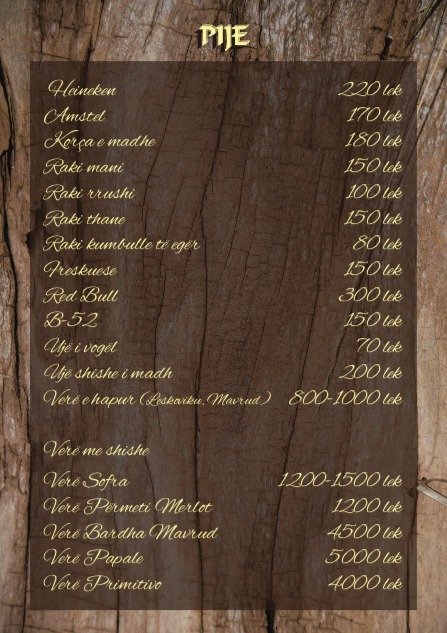 PIJE
Heineken 220 lek
Amstel 170 lek
Korça e madhe 180 lek
Raki mani 150 lek
Raki rrushi 100 lek
Raki thane 150 lek
Raki kumbulle të egër 80 lek
Freskuese 150 lek
Red Bull 300 lek
B-52 150 lek
Ujë i vogël 70 lek
Ujë shishe i madh 200 lek
Verë e hapur (Leskoviku, Mavrud) 800-1000 lek
Verë me shishe
Verë Sofra 1200-1500 lek
Verë Përmeti Merlot 1200 lek
Verë Bardha Mavrud 4500 lek
Verë Papale 5000 lek
Verë Primitivo 4000 lek